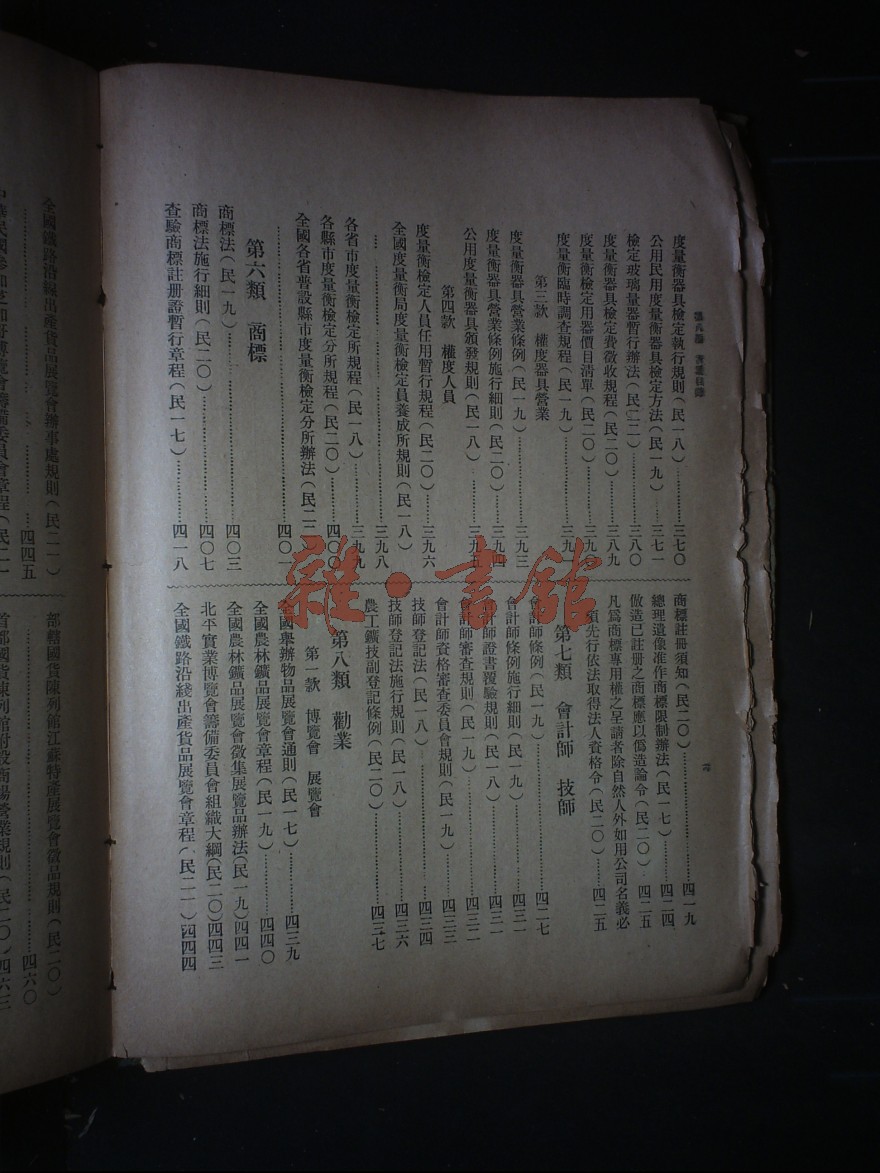 度量衡器具檢定執行規則(民一八)……三七〇
公用民用度量衡器具檢定方法(民一九)……三七一
檢定玻璃量器暫行辦法(民二二)……三八〇
度量衡器具檢定費徵收規程(民二〇)……三八九
度量衡檢定用器價目清單(民二〇)……三九
度量衡臨時調查規程(民一九)……三九
第三款 權度器具營業
度量衡器具營業條例(民一九)……三九三
度量衡器具營業條例施行細則(民二〇)……三九四
公用度量衡器具頒發規則(民一八)……三九五
第四款 權度人員
度量衡檢定人員任用暫行規程(民二〇)……三九六
全國度量衡局度量衡檢定員養成所規則(民一八)
……三九八
各省市度量衡檢定所規程(民一八)……三九九
各縣市度量衡檢定分所規程(民二〇)……四〇〇
全國各省普設縣市度量衡檢定分所辦法(民二二)
……四〇
第六類 商標
商標法(民一九)……四〇三
商標法施行細則(民二〇)……四〇七
查驗商標註册證暫行章程(民一七)……四一八
商標註册須知(民二〇)……四一九
總理遺像准作商標限制辦法(民一七)……四二四
倣造已註册之商標應以僞造論令(民二〇)四二五
凡爲商標專用權之呈請者除自然人外如用公司名義必
須先行依法取得法人資格令(民二〇)……四二五
第七類 會計師 技師
會計師條例(民一九)……四二七
會計師條例施行細則(民一九)……四三一
會計師證書覆驗規則(民一八)……四三一
會計師審查規則(民一九)……四三二
會計師資格審查委員會規則(民一九)……四三三
技師登記法(民一八)……四三四
技師登記法施行規則(民一八)……四三六
農工鑛技副登記條例(民二〇)……四三七
第八類 勸業
第一款 博覽會 展覽會
全國舉辦物品展覽會通則(民一七)……四三九
全國農林鑛品展覽會章程(民一九)……四四〇
全國農林鑛品展覽會徵集展覽品辦法(民一九)四四一
北平實業博覽會籌備委員會組織大綱(民二〇)四四三
全國鐵路沿綫出產貨品展覽會章程(民二一)四四四
全國鐵路沿綫出產貨品展覽會辦事處規則(民二一)
……四四五
部轄國貨陳列館江蘇特產展覽會徵品規則(民二〇)
……四六〇
首都國貨陳列館附設商場營業規則(民二〇)四六三
雜·書館